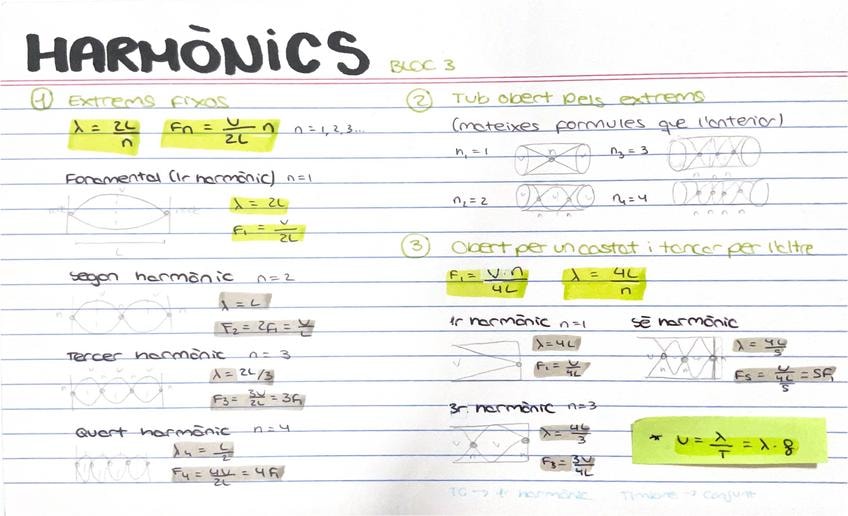 HARMÒNICS BLOC 3
1 Extrems fixos
λ = 2L/n Fn = v/2L n n = 1, 2, 3...
Fonamental (1r harmònic) n=1
λ = 2L
F₁ = v/2L
L
Segon harmònic n=2
λ = L
F₂ = 2F₁ = v/L
Tercer harmònic n = 3
λ = 2L/3
F₃ = 3v/2L = 3F₁
Quart harmònic n=4
λ₄ = L/2
F₄ = 4v/2L = 4F₁
2 Tub obert pels extrems
(mateixes formules que l'anterior)
n₁ = 1 n₃ = 3
n₂ = 2 n₄ = 4
3 Obert per un costat i tancat per l'altre
F₁ = v·n/4L λ = 4L/n
1r harmònic n=1
λ = 4L
F₁ = v/4L
5è harmònic
λ = 4L/5
F₅ = v/4L/5 = 5F₁
3r. harmònic n=3
λ = 4L/3
F₃ = 3v/4L
* v = λ/T = λ · f
TG → 1r harmònic Timbre → conjunt